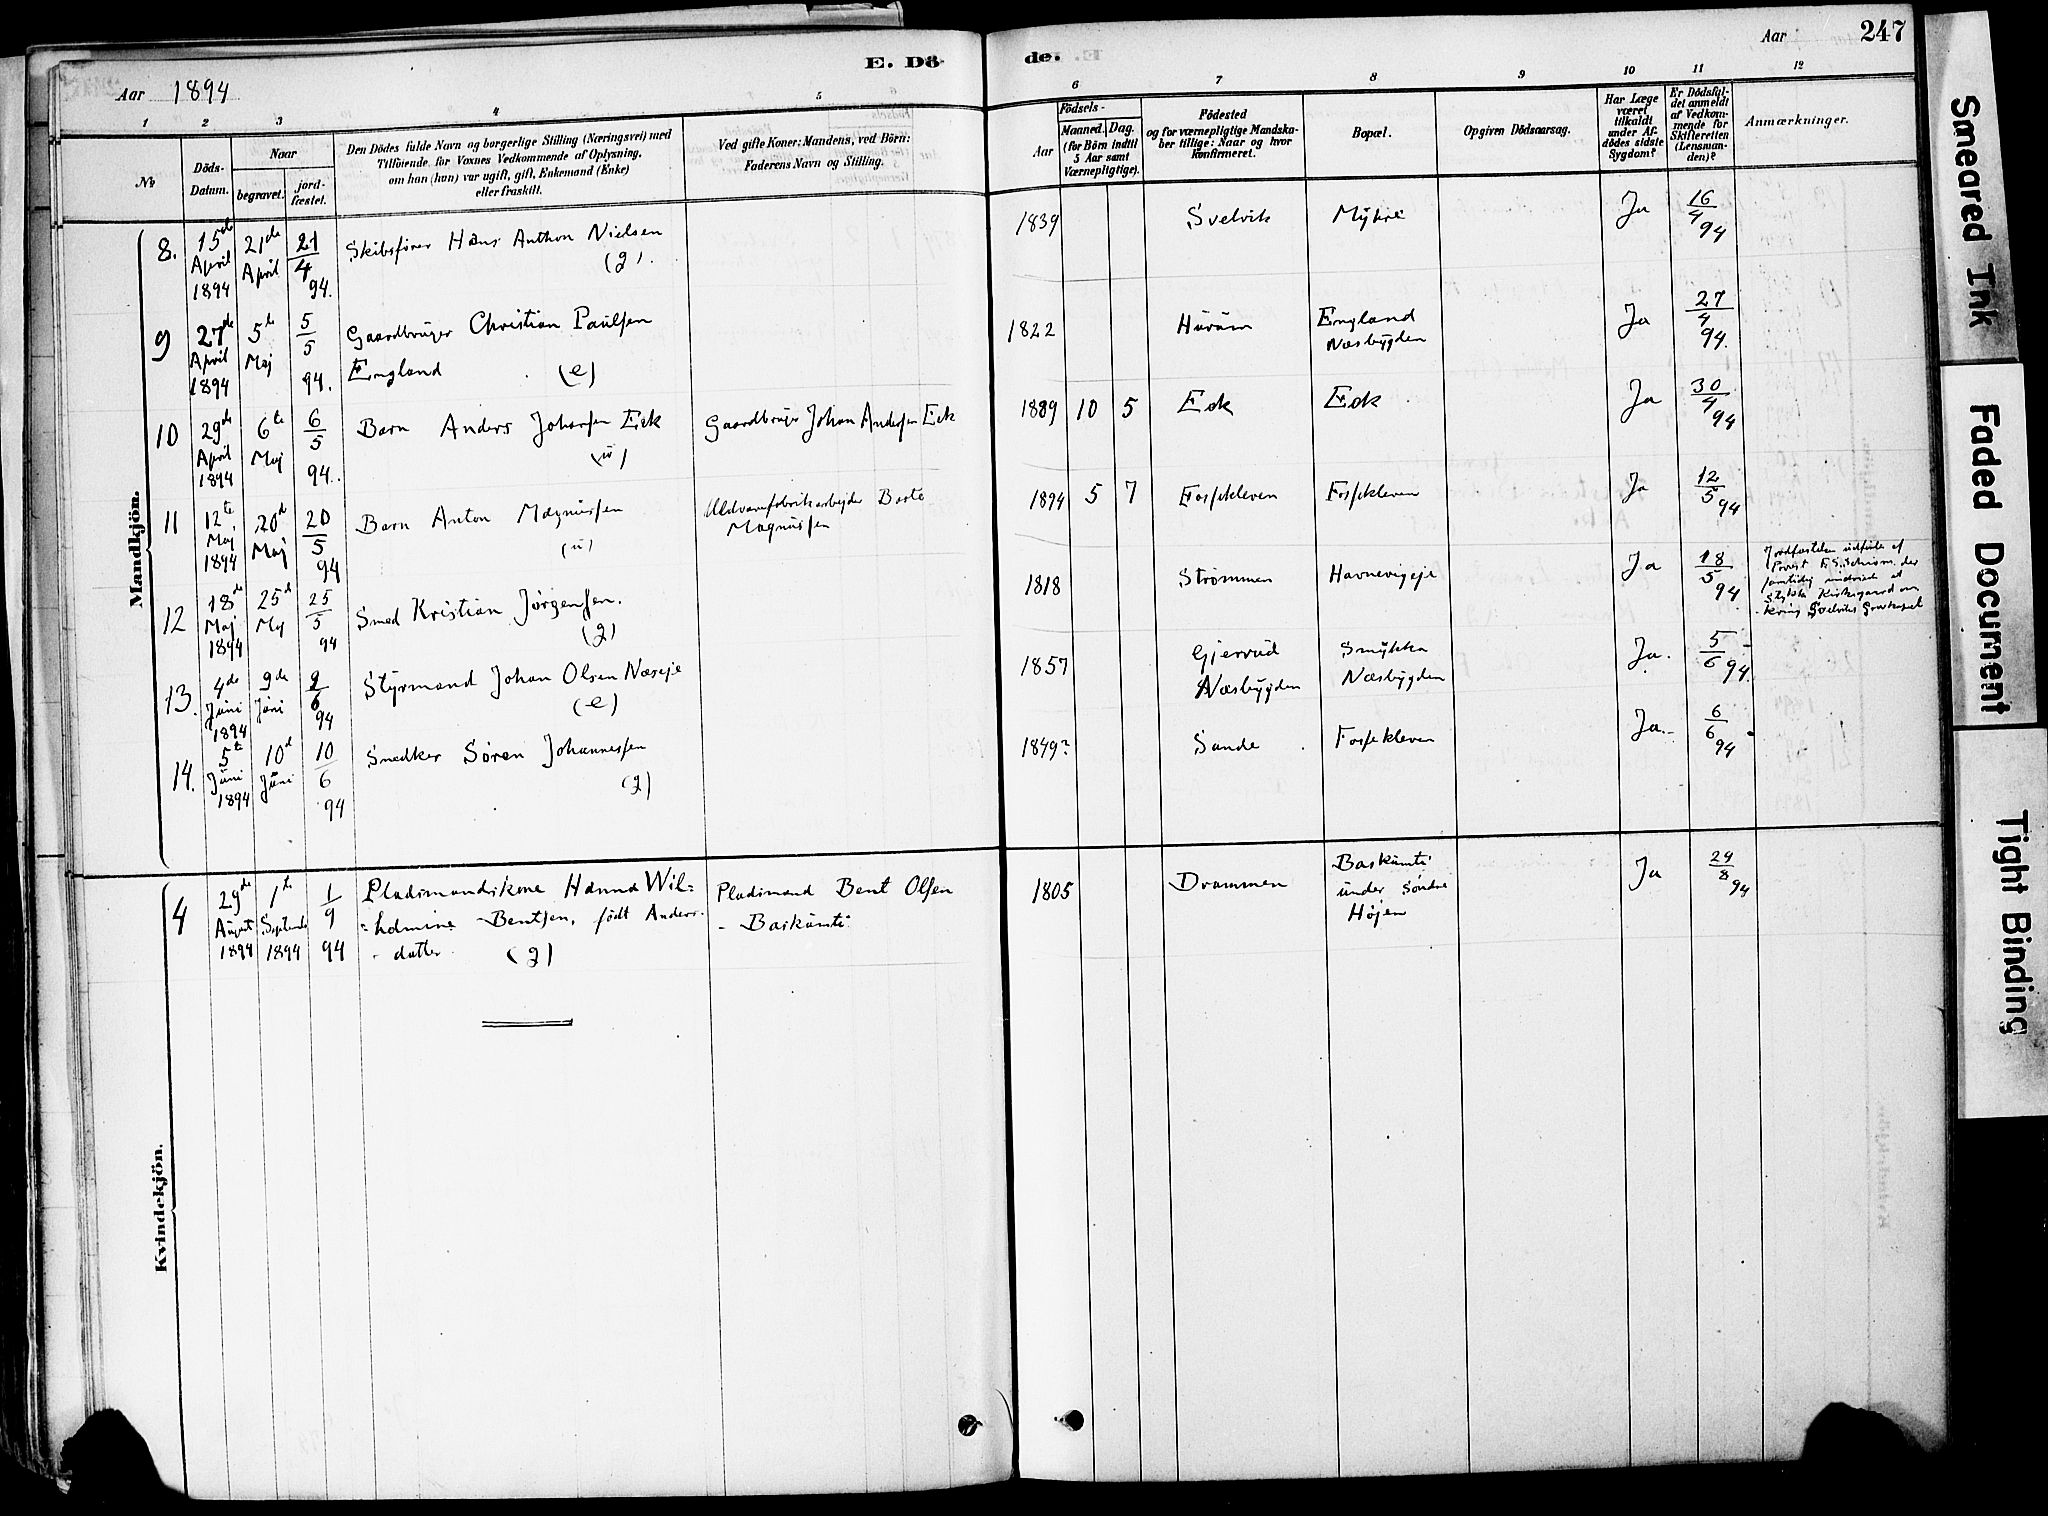 E. Dö-
de.
Aar 247
Aar 1894
1 2 3 4 5
6 7 8 9 10 11 12
№
Döds-
Datum.
Naar
begravet.
jord-
fæstet.
Den Dödes fulde Navn og borgerlige Stilling (Næringsvei) med
Tilföiende for Voxnes Vedkommende af Oplysning,
om han (hun) var ugift, gift, Enkemand (Enke)
eller fraskilt.
Ved gifte Koner: Mandens, ved Börn:
Faderens Navn og Stilling.
Födsels-
Aar
Maaned. Dag.
(for Börn indtil
5 Aar samt
Værnepligtige).
Födested
og for værnepligtige Mandska-
ber tillige: Naar og hvor
konfirmeret.
Bopæl.
Opgiven Dödsaarsag.
Har Læge
været
tilkaldt
under Af-
dödes sidste
Sygdom?
Er Dödsfal-
det anmeldt
af Vedkom-
mende for
Skifteretten
(Lensman-
den)?
Anmærkninger.
Mandkjön.
8. 15de April 1894 21de April 21/4 94. Skibsfører Hans Anthon Nielsen
(g).
1839 Svelvik Myhre Ja 16/4 94
9 27de April 1894 5te Maj 5/5 94. Gaardbruger Christian Paulsen
England (e)
1822 Hurum England
Næsbygden Ja 27/4 94.
10 29de April 1894 6te Maj 6/5 94. Barn Anders Johansen Eek
(u)
Gaardbruger Johan Andersen Eek
1889 10 5 Eek Eek Ja 30/4 94
11 12te Maj 1894 20de Maj 20/5 94 Barn Anton Magnussen
(u)
Uldvarefabrikarbejder
Magnussen
1894 5 7 Fossekleven Fossekleven Ja 12/5 94
12 18de Maj 1894 25de Maj 25/5 94 Smed Kristian Jørgensen.
(g)
1818 Strømmen Havnevigeje Ja 18/5 94.
Jordfæstelsen udførtes af
Provst
samtidig indviede et
Stykke Kirkegaard om-
kring Svelviks Gravkapel
13. 4de Juni 1894 9de Juni 9/6 94 Styrmand Johan Olsen Næseje
(e)
1857 Gjerrud
Næsbygden Smykka
Næsbygden Ja. 5/6 94.
14. 5te Juni 1894 10de Juni 10/6 94 Snedker Søren Johannessen
(g)
1849? Sande Fossekleven Ja. 6/6 94
Kvindekjön.
4 29de August 1894 1te September 1894 1/9 94 Pladsmandskone Hanna Wil-
helmine Bentsen, født Anders-
datter (g)
Pladsmand Bent Olsen
- Baskumti
1805 Drammen Baskumti
under Søndre
Højen Ja 29/8 94
Smeared Ink
Faded Document
Tight Binding